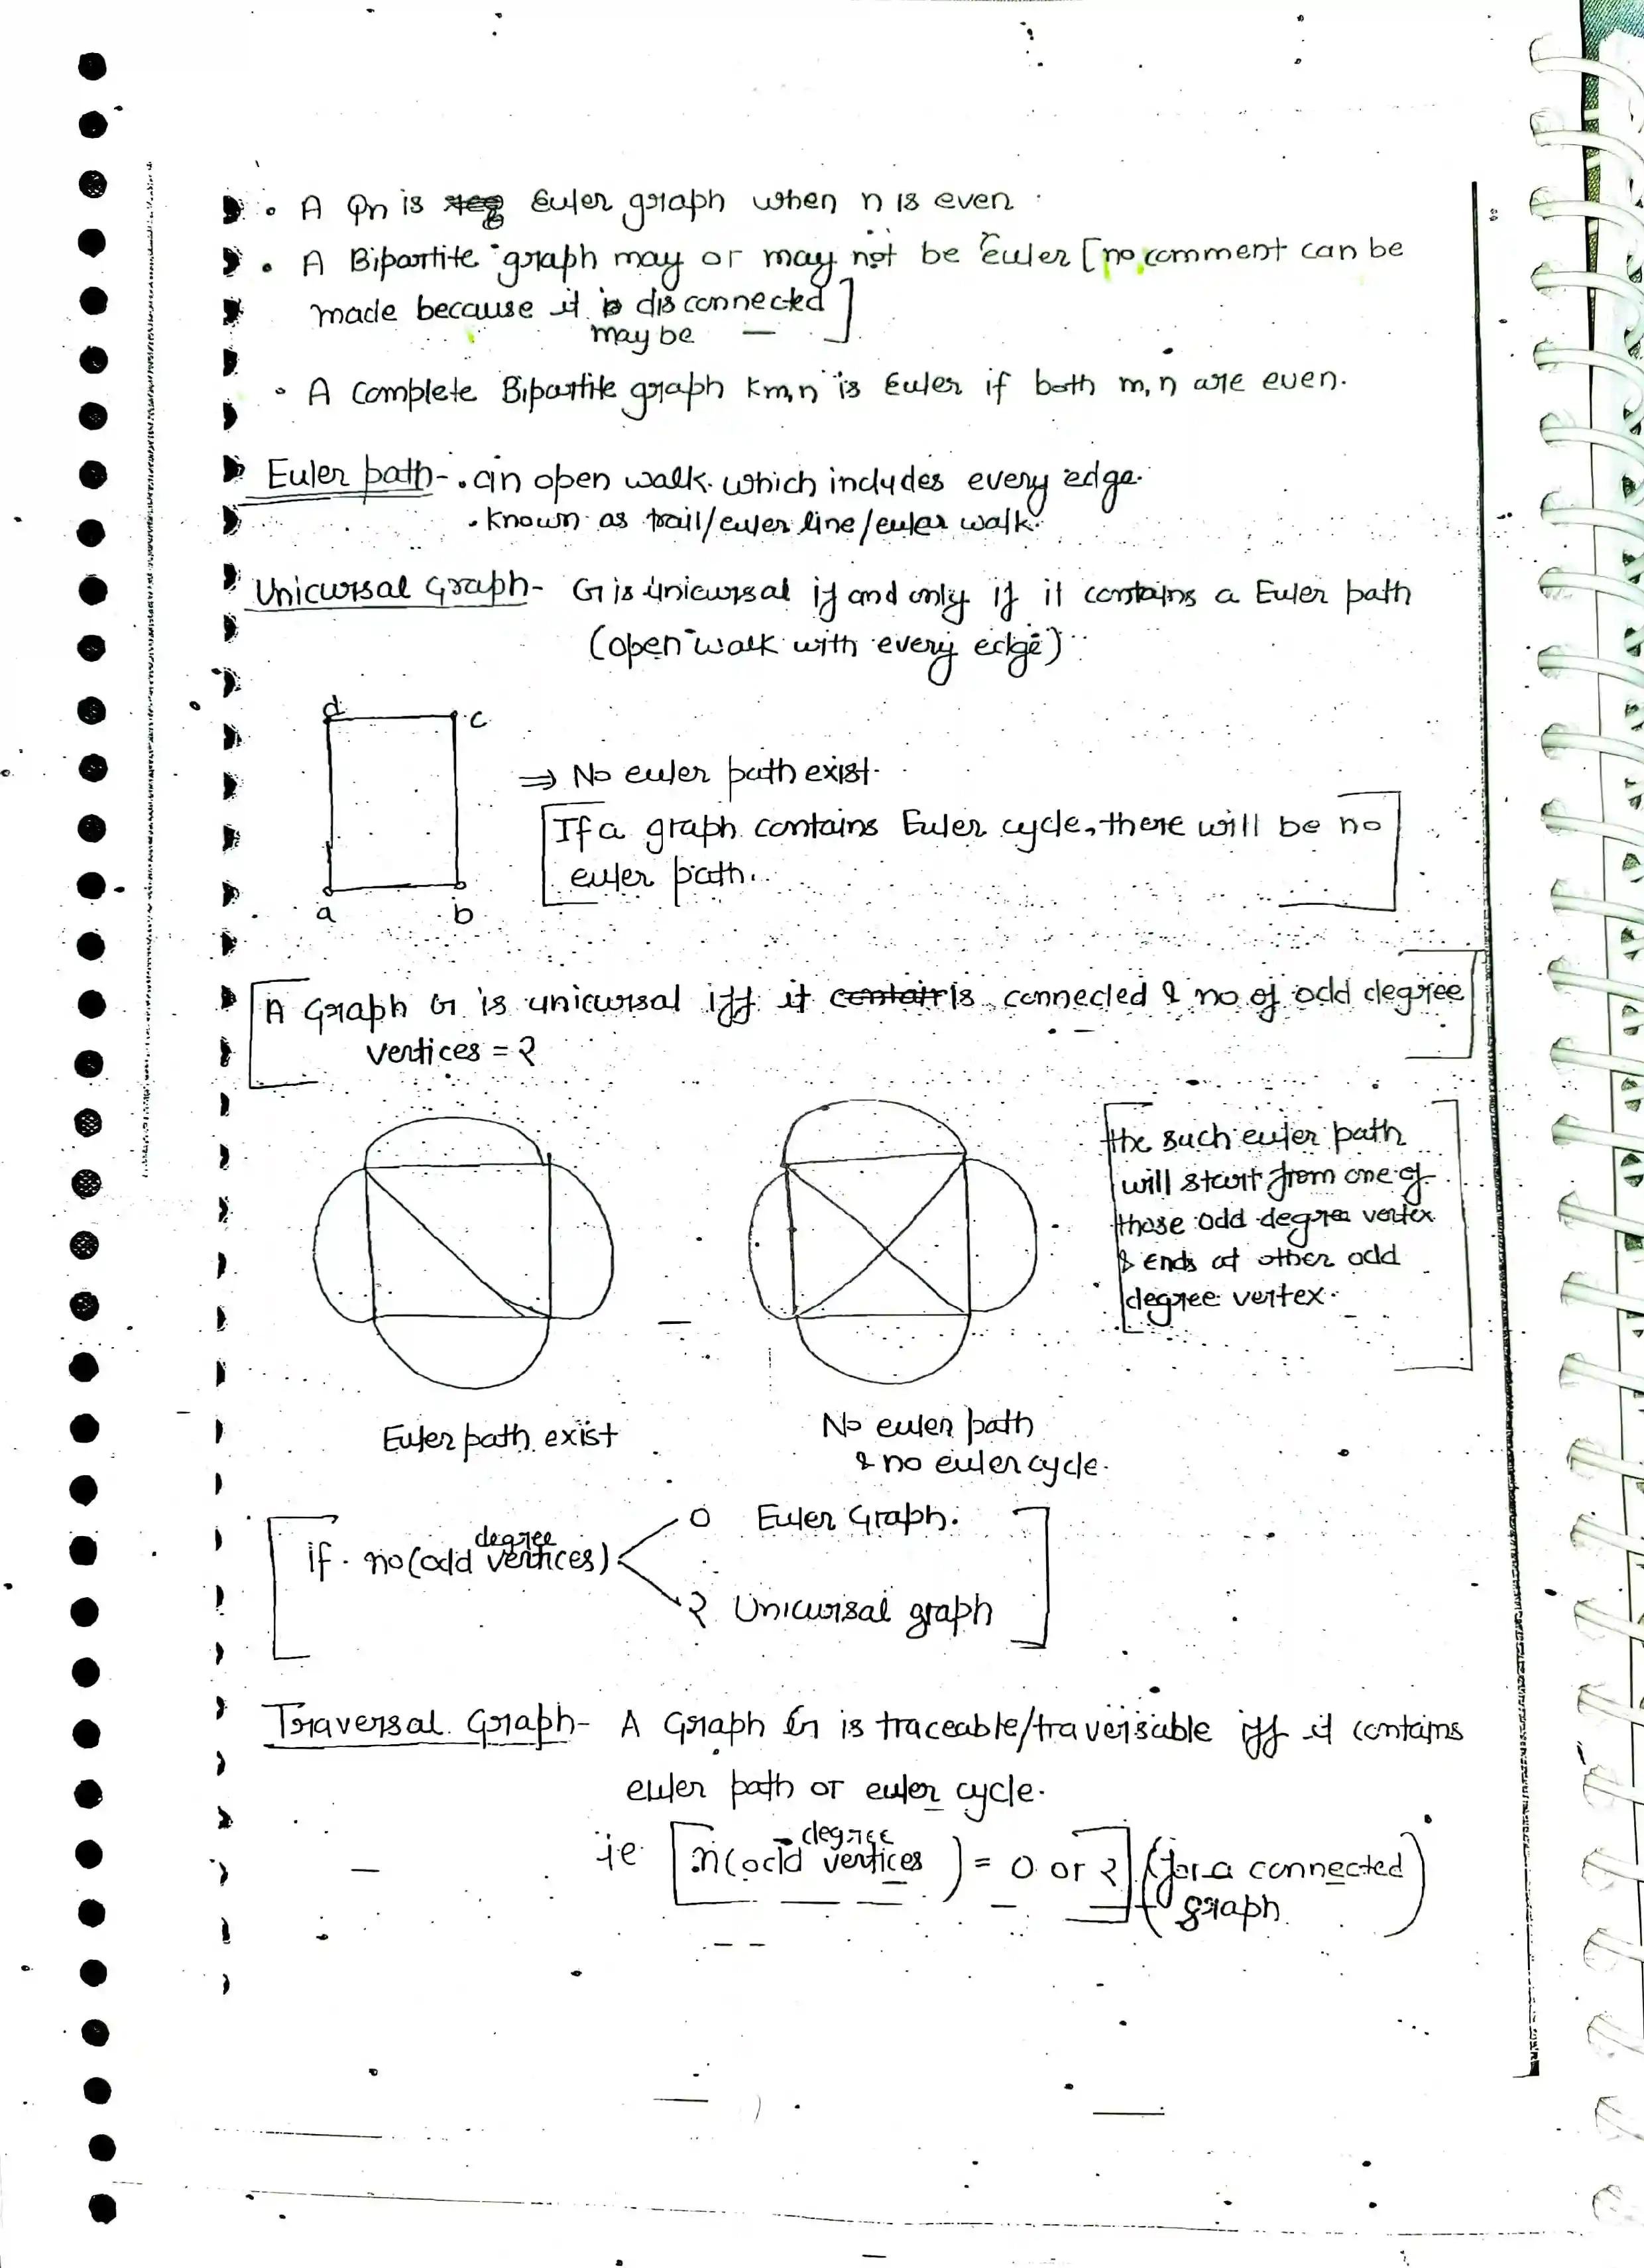 • A Qn is Euler graph when n is even
• A Bipartite graph may or may not be Euler [no comment can be
made because it is disconnected]
may be
• A complete Bipartite graph Km,n is Euler if both m, n are even.
Euler path - • an open walk which includes every edge.
• Known as trail/euler line/euler walk.
Unicursal Graph - G is unicursal if and only if it contains a Euler path
(open walk with every edge)
d
c
⇒ No euler path exist.
If a graph contains Euler cycle, there will be no
euler path.
a b
A Graph G is unicursal iff it contain is connected & no of odd degree
vertices = 2
the such euler path
will start from one of
those odd degree vertex
& ends at other odd
degree vertex.
Euler path exist
No euler path
& no euler cycle.
0 Euler Graph.
degree
if no(odd vertices)
2 Unicursal graph
Traversal Graph - A Graph G is traceable/traversable iff it contains
euler path or euler cycle.
degree
ie [n(odd vertices) = 0 or 2] (for a connected
graph)